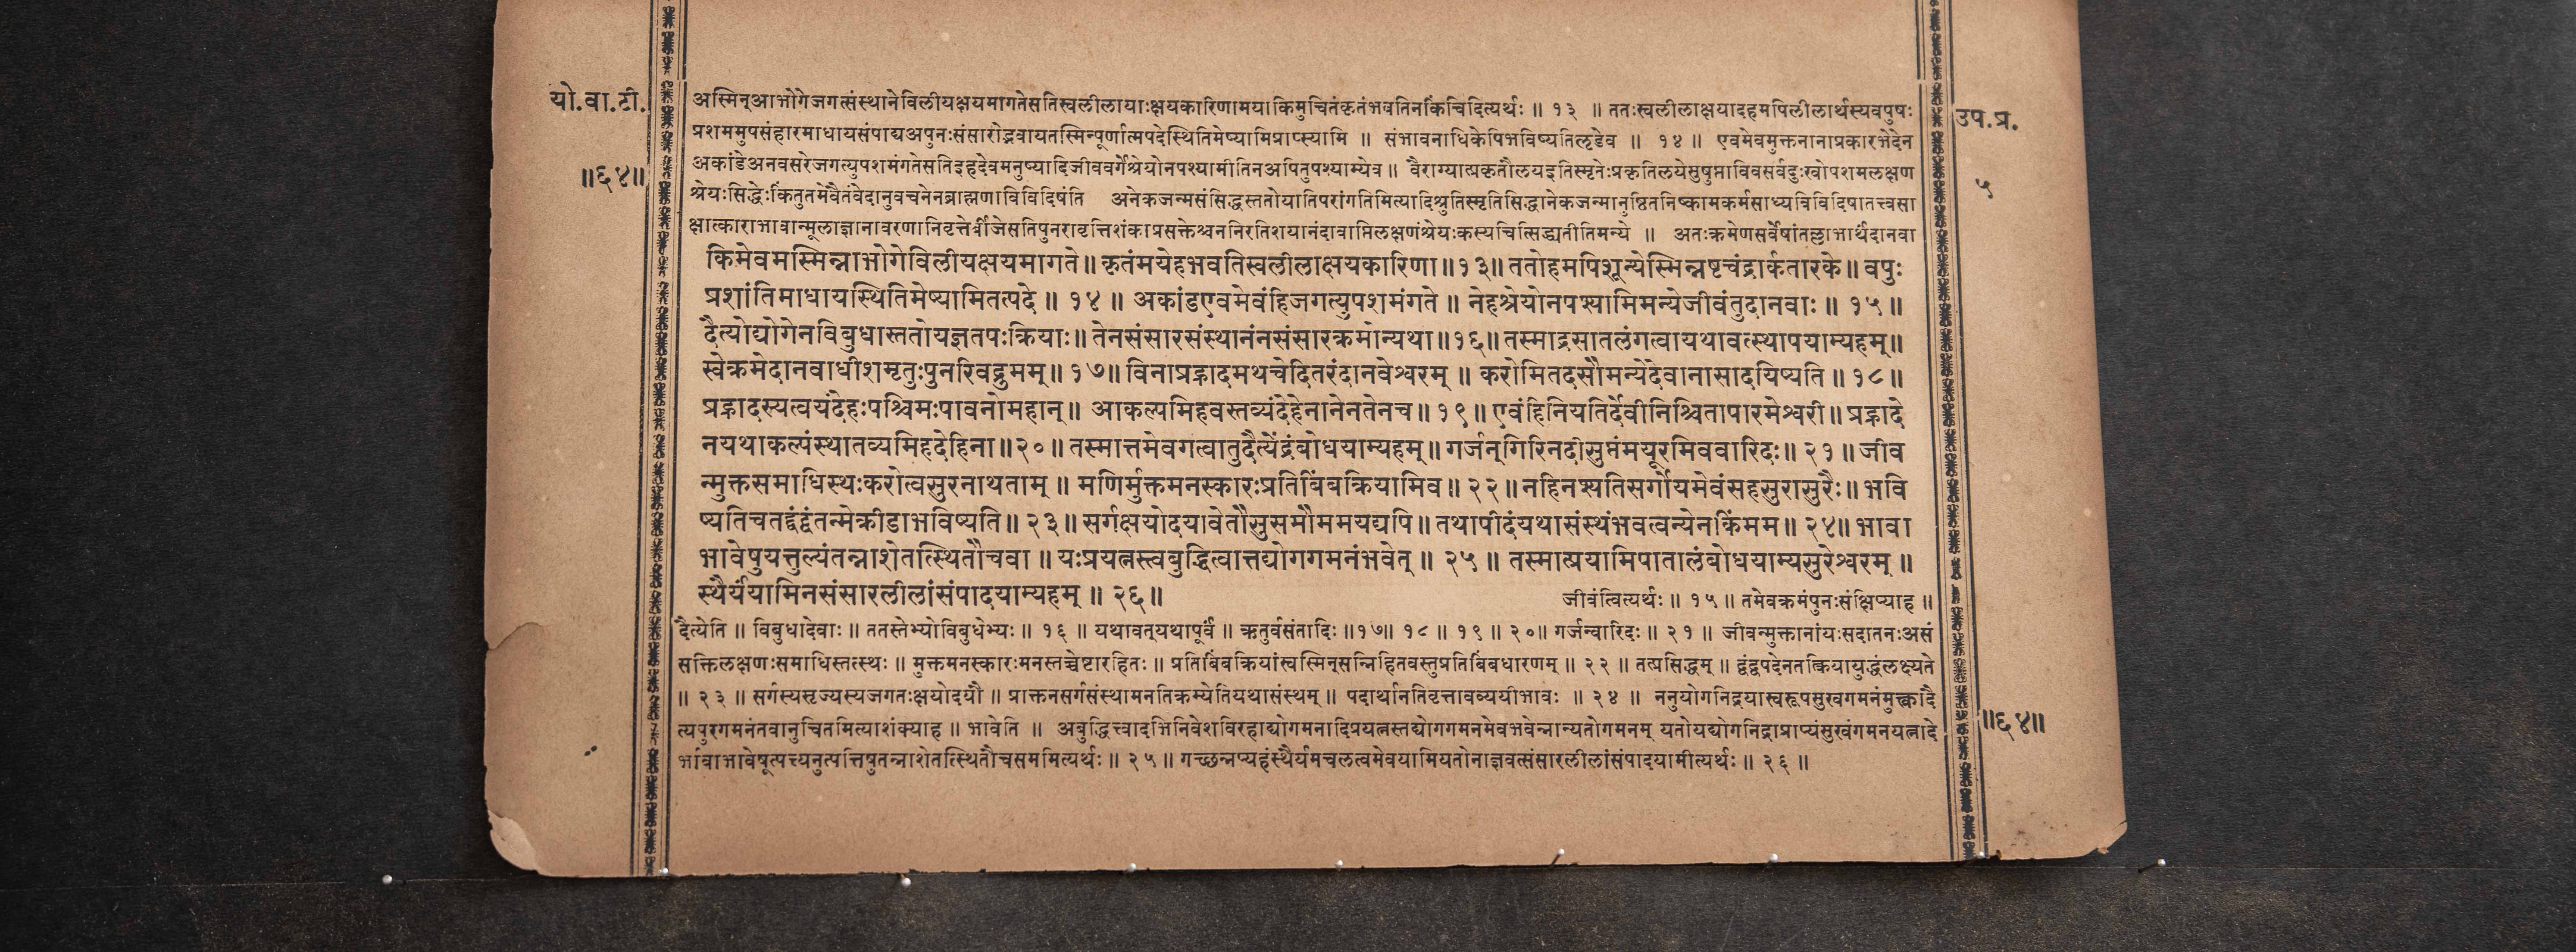 यो.वा.टी.
॥६४॥
अस्मिन्आभोगेजगत्संस्थानेविलीयक्षयमागतेसतिस्वलीलायाःक्षयकारिणामयाकिमुचितंकृतंभवतिनकिंचिदित्यर्थः ॥ १३ ॥ ततःस्वलीलाक्षयादहमपिलीलार्थस्यवपुषः
प्रशममुपसंहारमाधायसंपाद्यअपुनःसंसारोद्भवायतस्मिन्पूर्णात्मपदेस्थितिमेष्यामिप्राप्स्यामि ॥ संभावनाधिकेपिभविष्यतिलृडेव ॥ १४ ॥ एवमेवमुक्तनानाप्रकारभेदेन
अकांडेअनवसरेजगत्युपशमंगतेसतिइहदेवमनुष्यादिजीववर्गेश्रेयोनपश्यामीतिनअपितुपश्याम्येव ॥ वैराग्यात्प्रकृतौलयइतिस्मृतेःप्रकृतिलयेसुषुप्ताविवसर्वदुःखोपशमलक्षण
श्रेयःसिद्धेःकिंतुतमेवैतंवेदानुवचनेनब्राह्मणाविविदिषंति अनेकजन्मसंसिद्धस्ततोयातिपरांगतिमित्यादिश्रुतिस्मृतिसिद्धानेकजन्मानुष्ठितनिष्कामकर्मसाध्यविविदिषातत्त्वसा
क्षात्काराभावान्मूलाज्ञानावरणानिवृत्तेर्बीजेसतिपुनरावृत्तिशंकाप्रसक्तेश्चननिरतिशयानंदावाप्तिलक्षणंश्रेयःकस्यचित्सिद्ध्यतीतिमन्ये ॥ अतःक्रमेणसर्वेषांतल्लाभार्थंदानवा
किमेवमस्मिन्नाभोगेविलीयक्षयमागते ॥ कृतंमयेहभवतिस्वलीलाक्षयकारिणा ॥१३॥ ततोहमपिशून्येस्मिन्नष्टचंद्रार्कतारके ॥ वपुः
प्रशांतिमाधायस्थितिमेष्यामितत्पदे ॥ १४ ॥ अकांडएवमेवंहिजगत्युपशमंगते ॥ नेहश्रेयोनपश्यामिमन्येजीवंतुदानवाः ॥ १५ ॥
दैत्योद्योगेनविबुधास्ततोयज्ञतपःक्रियाः ॥ तेनसंसारसंस्थानंनसंसारक्रमोन्यथा ॥१६॥ तस्माद्रसातलंगत्वायथावत्स्थापयाम्यहम् ॥
स्वेक्रमेदानवाधीशमृतुःपुनरिवद्रुमम् ॥ १७ ॥ विनाप्रह्लादमथचेदितरंदानवेश्वरम् ॥ करोमितदसौमन्येदेवानासादयिष्यति ॥ १८ ॥
प्रह्लादस्यत्वयंदेहःपश्चिमःपावनोमहान् ॥ आकल्पमिहवस्तव्यंदेहेनानेनतेनच ॥ १९ ॥ एवंहिनियतिर्देवीनिश्चितापारमेश्वरी ॥ प्रह्लादे
नयथाकल्पंस्थातव्यमिहदेहिना ॥२०॥ तस्मात्तमेवगत्वातुदैत्येंद्रंबोधयाम्यहम् ॥ गर्जन्गिरिनदीसुप्तंमयूरमिववारिदः ॥ २१ ॥ जीव
न्मुक्तसमाधिस्थःकरोत्वसुरनाथताम् ॥ मणिर्मुक्तमनस्कारःप्रतिबिंबक्रियामिव ॥ २२ ॥ नहिनश्यतिसर्गोयमेवंसहसुरासुरैः ॥ भवि
ष्यतिचतद्द्वंद्वंतन्मेक्रीडाभविष्यति ॥ २३ ॥ सर्गक्षयोदयावेतौसुसमौममयद्यपि ॥ तथापीदंयथासंस्थंभवत्वन्येनकिंमम ॥ २४॥ भावा
भावेषुयत्तुल्यंतन्नाशेतत्स्थितौचवा ॥ यःप्रयत्नस्त्वबुद्धित्वात्तद्योगगमनंभवेत् ॥ २५ ॥ तस्मात्प्रयामिपातालंबोधयाम्यसुरेश्वरम् ॥
स्थैर्यंयामिनसंसारलीलांसंपादयाम्यहम् ॥ २६ ॥
जीवंत्वित्यर्थः ॥ १५ ॥ तमेवक्रमंपुनःसंक्षिप्याह ॥
दैत्येति ॥ विबुधादेवाः ॥ ततस्तेभ्योविबुधेभ्यः ॥ १६ ॥ यथावत्यथापूर्वं ॥ ऋतुर्वसंतादिः ॥१७॥ १८ ॥ १९ ॥ २०॥ गर्जन्वारिदः ॥ २१ ॥ जीवन्मुक्तानांयःसदातनःअसं
सक्तिलक्षणःसमाधिस्तत्स्थः ॥ मुक्तमनस्कारःमनस्तच्चेष्टारहितः ॥ प्रतिबिंबक्रियांस्वस्मिन्सन्निहितवस्तुप्रतिबिंबधारणम् ॥ २२ ॥ तत्प्रसिद्धम् ॥ द्वंद्वपदेनतत्क्रियायुद्धंलक्ष्यते
॥ २३ ॥ सर्गस्यसृज्यस्यजगतःक्षयोदयौ ॥ प्राक्तनसर्गसंस्थामनतिक्रम्येतियथासंस्थम् ॥ पदार्थानतिवृत्तावव्ययीभावः ॥ २४ ॥ ननुयोगनिद्रयास्वरूपसुखगमनंमुक्त्वादै
त्यपुरगमनंतवानुचितमित्याशंक्याह ॥ भावेति ॥ अबुद्धित्वादभिनिवेशविरहाद्योगमनादिप्रयत्नस्तद्योगगमनमेवभवेन्नान्यतोगमनम् यतोयद्योगनिद्राप्राप्यंसुखंगमनयत्नादे
र्भावाभावेषूत्पत्त्यनुत्पत्तिषुतन्नाशेतत्स्थितौचसममित्यर्थः ॥ २५ ॥ गच्छन्नप्यहंस्थैर्यमचलत्वमेवयामियतोनाज्ञवत्संसारलीलांसंपादयामीत्यर्थः ॥ २६ ॥
उप.प्र.
५
॥६४॥